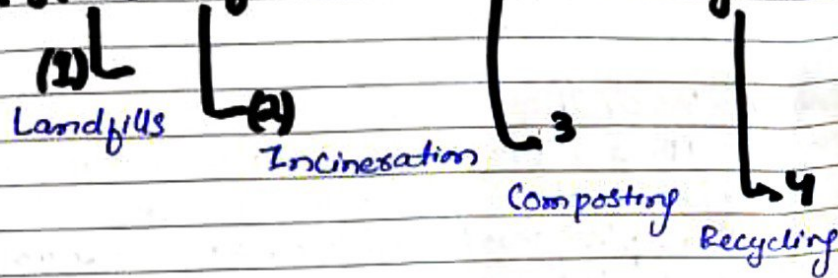 (1)
Landfills
(2)
Incineration
3
Composting
4
Recycling